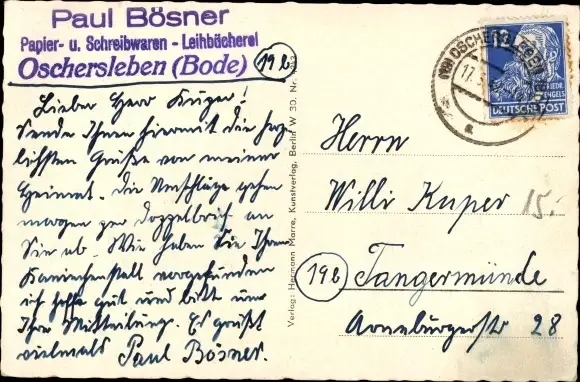 Paul Bösner
Papier- u. Schreibwaren - Leihbücherei
Oschersleben (Bode)
19b
Lieber Herr Küper!
Sende Ihnen hiermit die herz-
lichsten Grüße von meiner
Heimat. Die Umschläge gehen
morgen per Doppelbrief an
Sie ab. Wie haben Sie Ihren
Kaninchenstall vorgefunden
ich hoffe gut und bitte um
Ihre Mitteilung. Es grüßt
vielmals Paul Bösner.
Verlag: Hermann Marre, Kunstverlag, Berlin W 30. Nr.
OSCHERSLEBEN
17.
a
ENGELS
DEUTSCHE POST
Herrn
Willi Küper
15.-
19b Tangermünde
Arneburgerstr 28